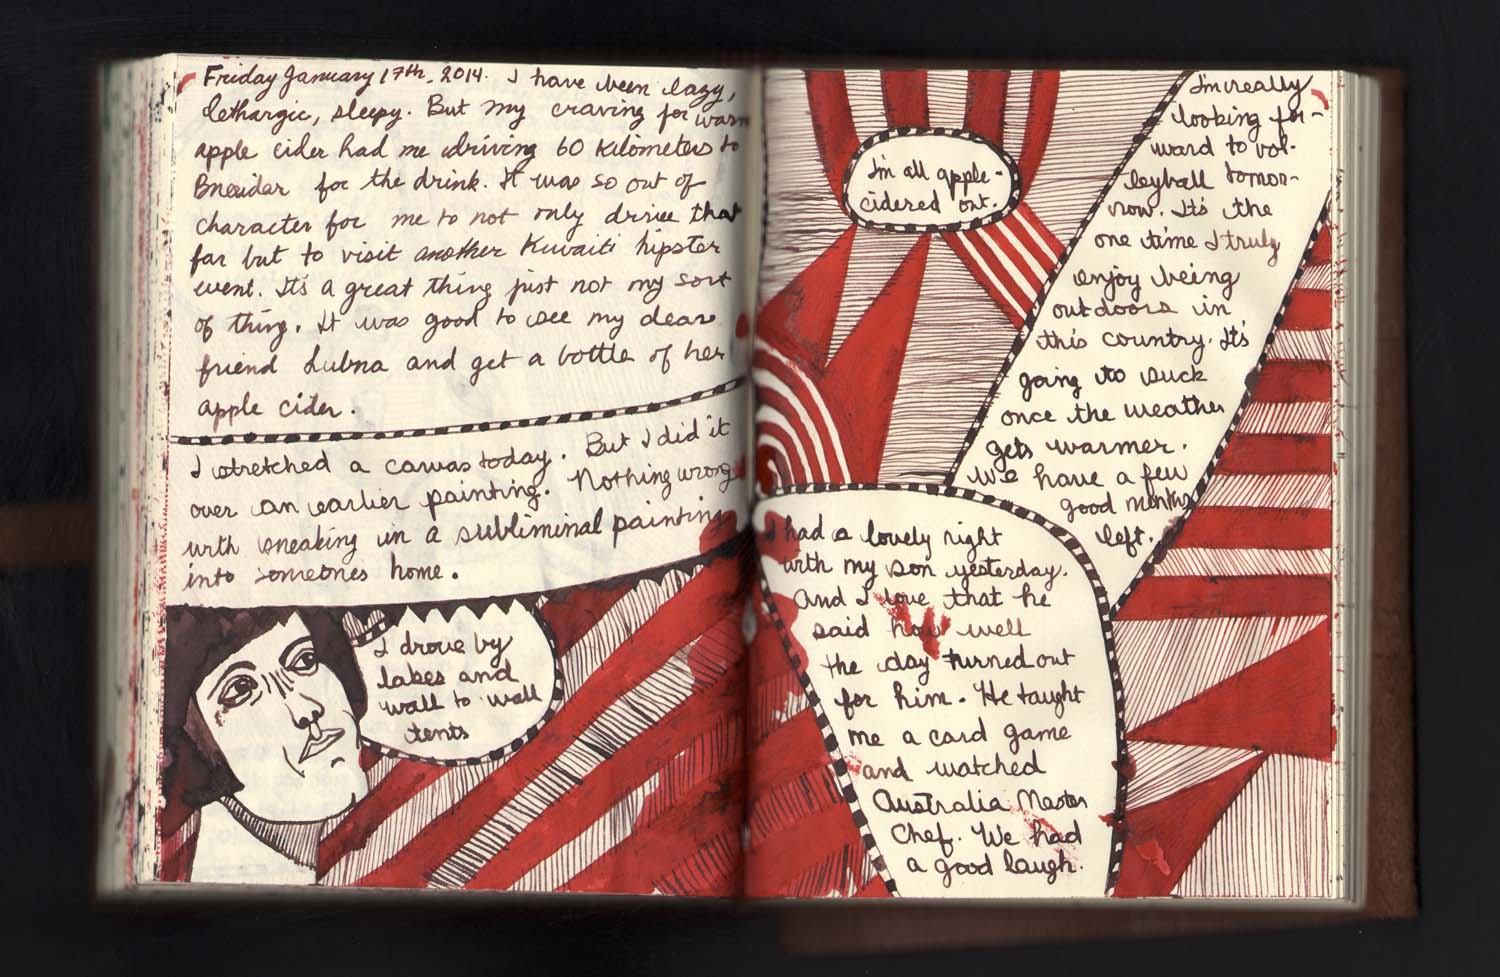 Friday January 17th, 2014. I have been lazy,
lethargic, sleepy. But my craving for warm
apple cider had me driving 60 kilometers to
Bneidar for the drink. It was so out of
character for me to not only drive that
far but to visit another Kuwaiti hipster
event. It's a great thing just not my sort
of thing. It was good to see my dear
friend Lubna and get a bottle of her
apple cider.
I stretched a canvas today. But I did it
over an earlier painting. Nothing wrong
with sneaking in a subliminal painting
into someones home.
I drove by
lakes and
wall to wall
tents
I'm all apple-
cidered out.
I'm really
looking for-
ward to vol-
leyball tomor-
row. It's the
one time I truly
enjoy being
outdoors in
this country. It's
going to suck
once the weather
gets warmer.
We have a few
good months
left.
I had a lovely night
with my son yesterday.
And I love that he
said how well
the day turned out
for him. He taught
me a card game
and watched
Australia Master
Chef. We had
a good laugh.